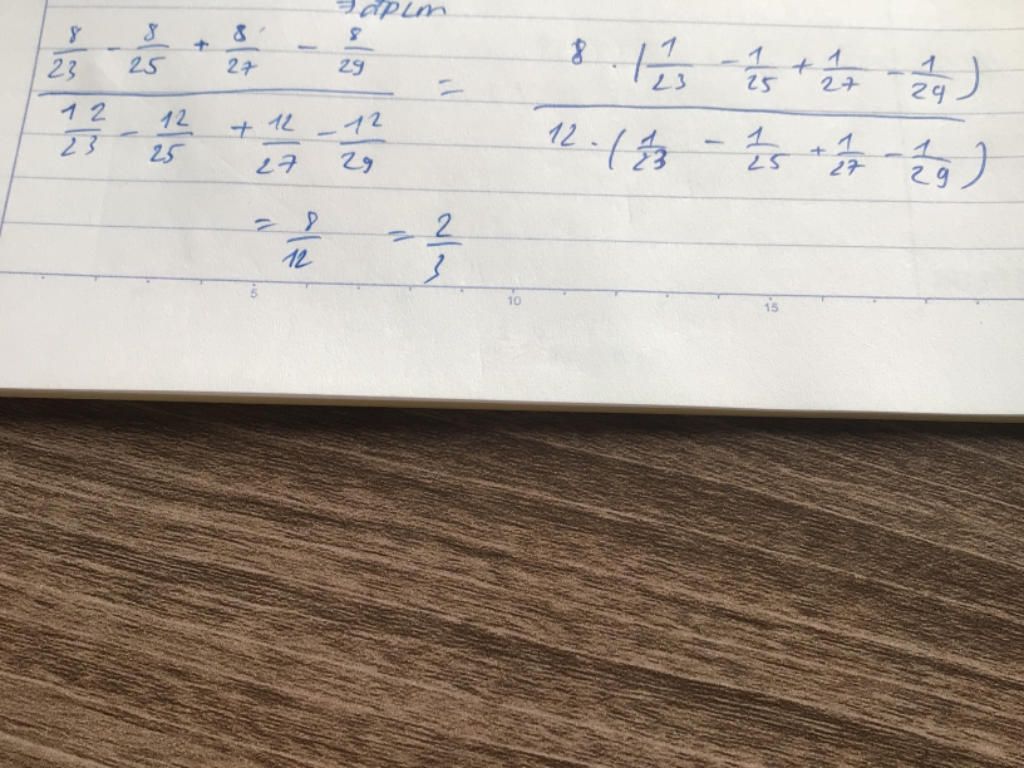 8/23 - 8/25 + 8/27 - 8/29 / 12/23 - 12/25 + 12/27 - 12/29 = 8 · (1/23 - 1/25 + 1/27 - 1/29) / 12 · (1/23 - 1/25 + 1/27 - 1/29)
= 8/12 = 2/3
5 10 15